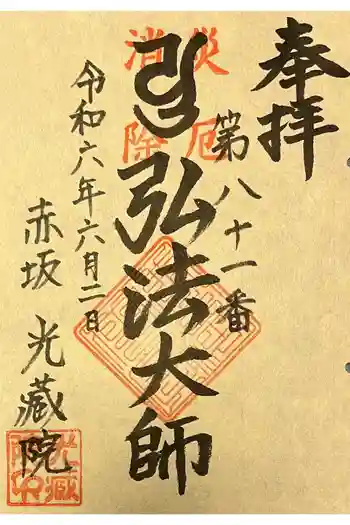 奉拝
災厄
消除
第八十一番
弘法大師
令和六年六月二日
赤坂 光蔵院